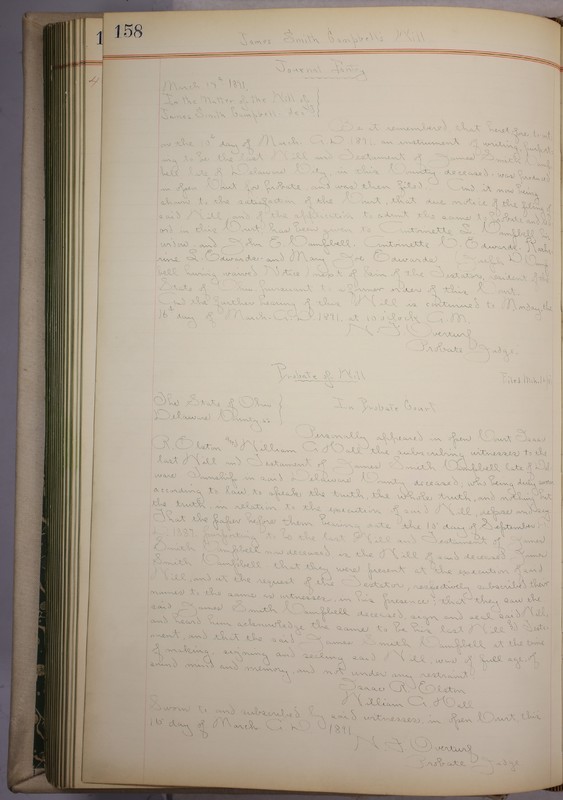 158
James Smith Campbell's Will
Journal Entry
March 14th 1891,
In the Matter of the Will of
James Smith Campbell decsd
Be it remembered that heretofore to wit
on the day of March A.D. 1891 an instrument of writing, purport
ing to be the last Will and Testament of James Smith Camp
bell late of Delaware City, in this County deceased, was produced
in open Court for Probate, and was then filed And it now being
shown to the satisfaction of the Court, that due notice of the filing of
said Will, and of the application to admit the same to Probate and
in this Court has been given to Antoinette Campbell
widow, and John E. Campbell, Antonnette C. Edwards,
Edwards and Mary Edwards Joseph
having waived Notice of the Testator, resident of the
State of Ohio pursuant to a former order of this Court
and the further hearing of this Will is continued to Monday the
16th day of March A.D. 1891, at 10 o'clock A.M.
N. F. Overturf
Probate Judge.
Probate of Will
Filed
The State of Ohio
Delaware County ss
In Probate Court
Personally appeared in open Court Isaac
R. Elston & William G. Hall the subscribing witnesses to the
last Will and Testament of James Smith Campbell late of Dela
ware Township in said Delaware County deceased, who being duly sworn
according to law to speak the truth, the whole truth, and nothing but
the truth, in relation to the execution of said Will, depose and say
That the paper before them bearing date the 10 day of September
1889, purporting to be the last Will and Testament of James
Smith Campbell now deceased is the Will of said deceased James
Smith Campbell that they were present at the execution of said
Will, and at the request of the Testator, respectively subscribed their
names to the same as witnesses, in his presence; that they saw the
said James Smith Campbell deceased, sign and seal said Will
and heard him acknowledge the same to be his last Will & Testa-
ment, and that the said James Smith Campbell at the time
of making, signing and sealing said Will, was of full age, of
sound mind and memory, and not under any restraint.
Isaac R. Elston
William G. Hall
Sworn to and subscribed by said witnesses, in open Court this
16 day of March A.D. 1891
N. F. Overturf
Probate Judge